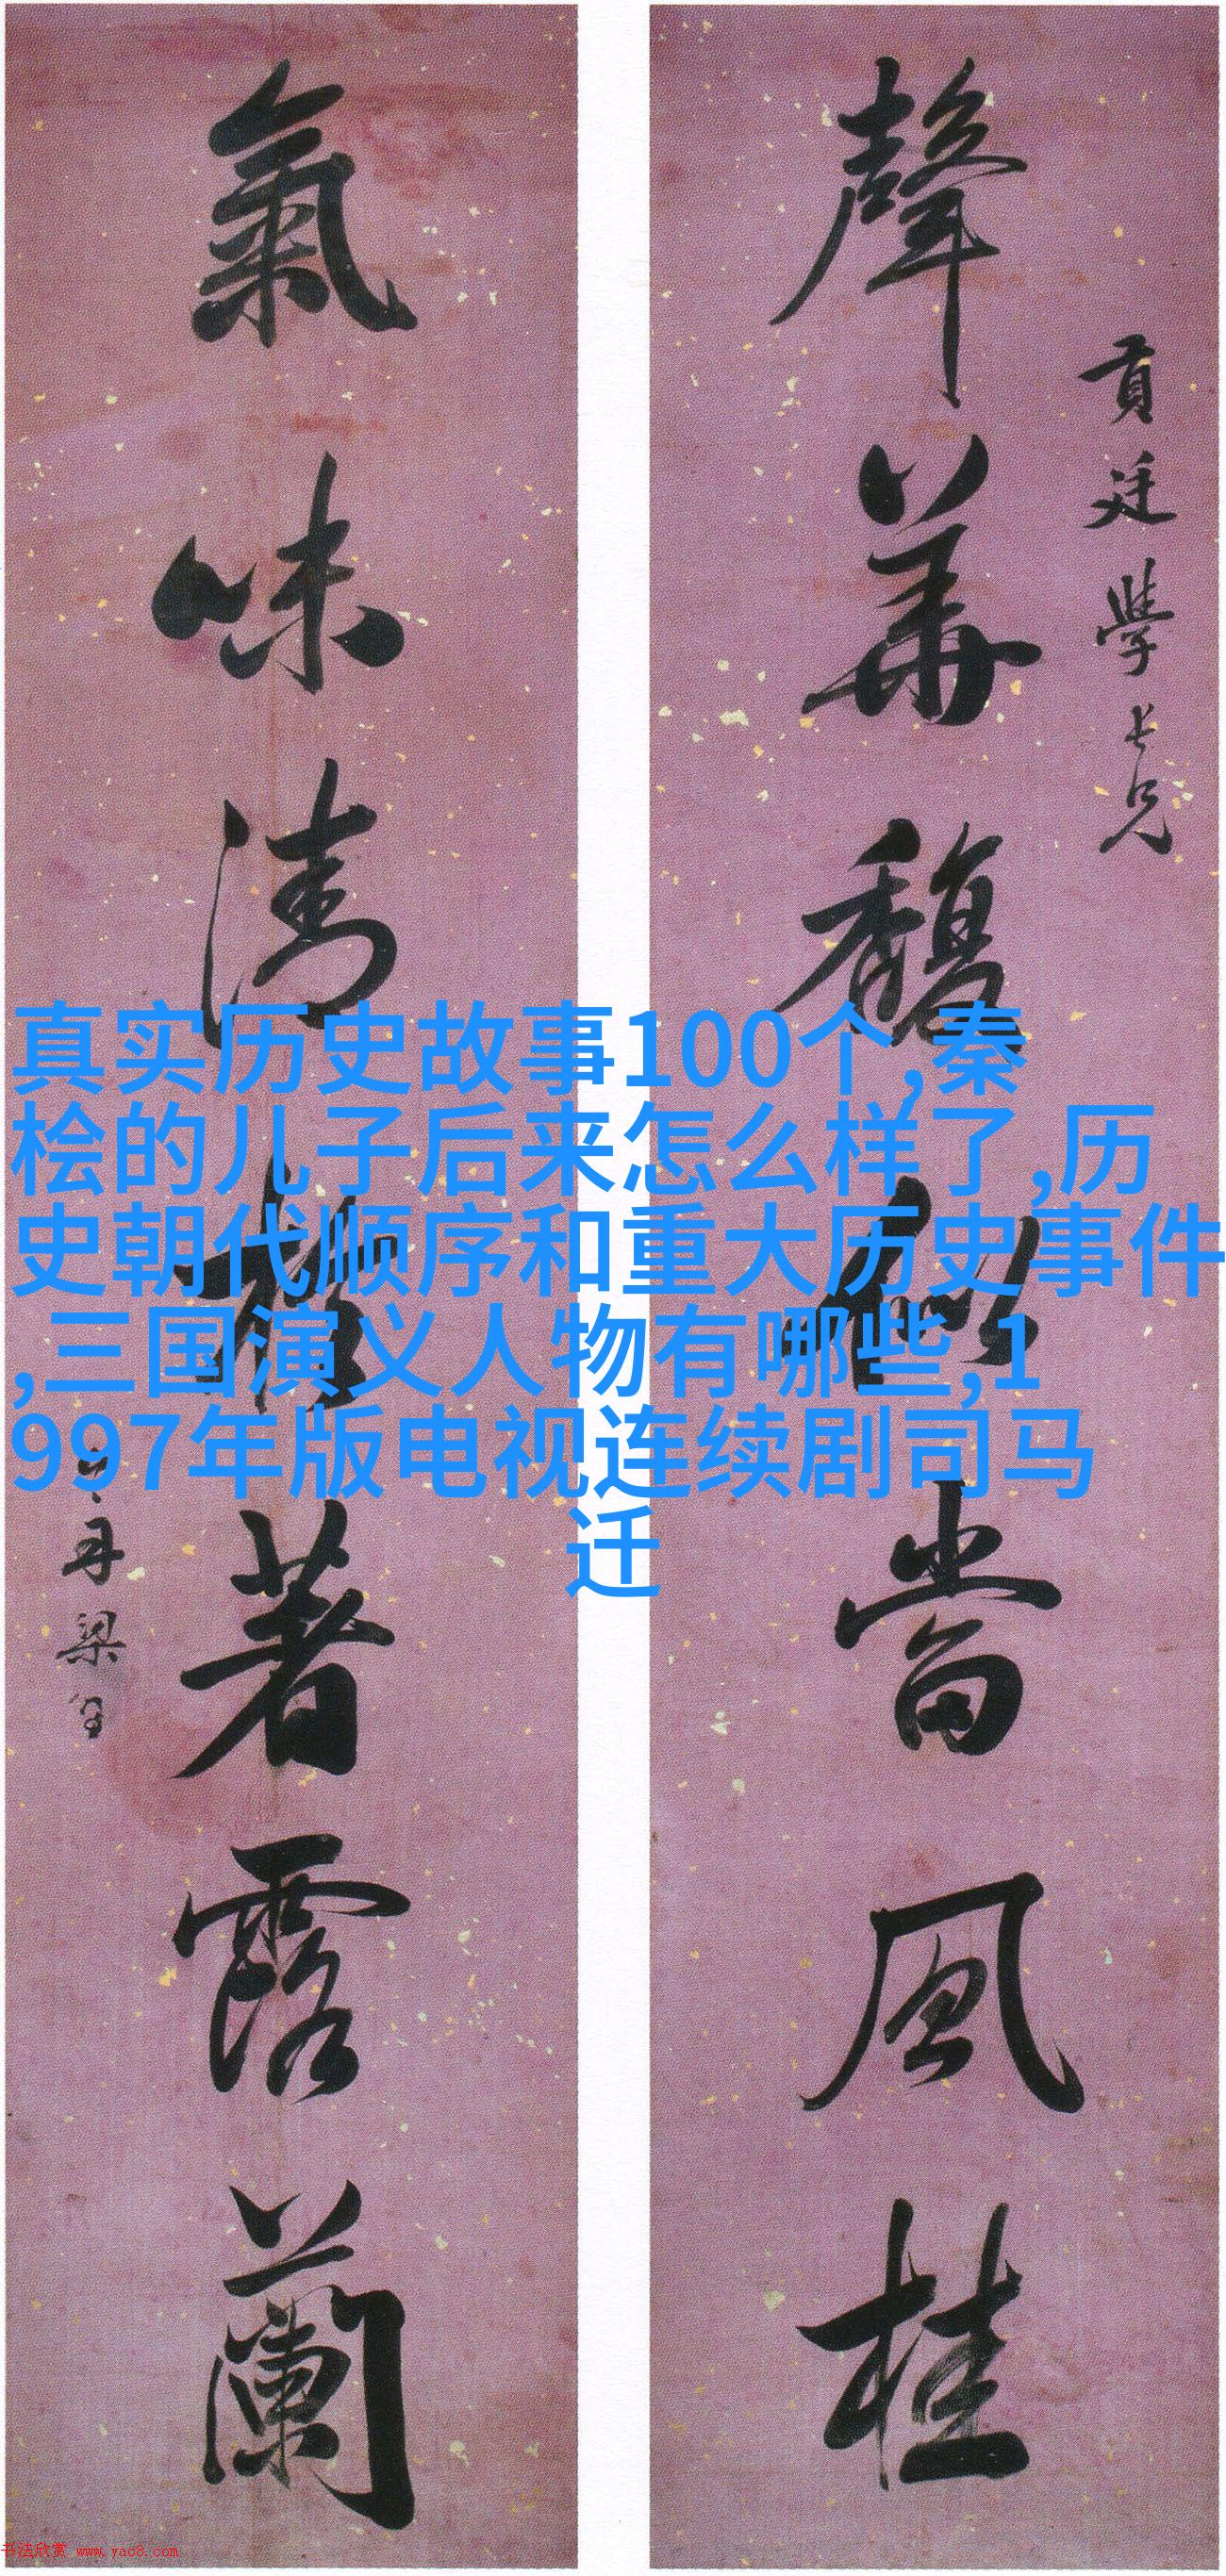 聲華馥似當風桂
貢廷學長兄
氣味清於著露蘭
山舟梁
真实历史故事100个,秦
桧的儿子后来怎么样了,历
史朝代顺序和重大历史事件
,三国演义人物有哪些,1
997年版电视连续剧司马
迁
书法欣赏 www.yac8.com